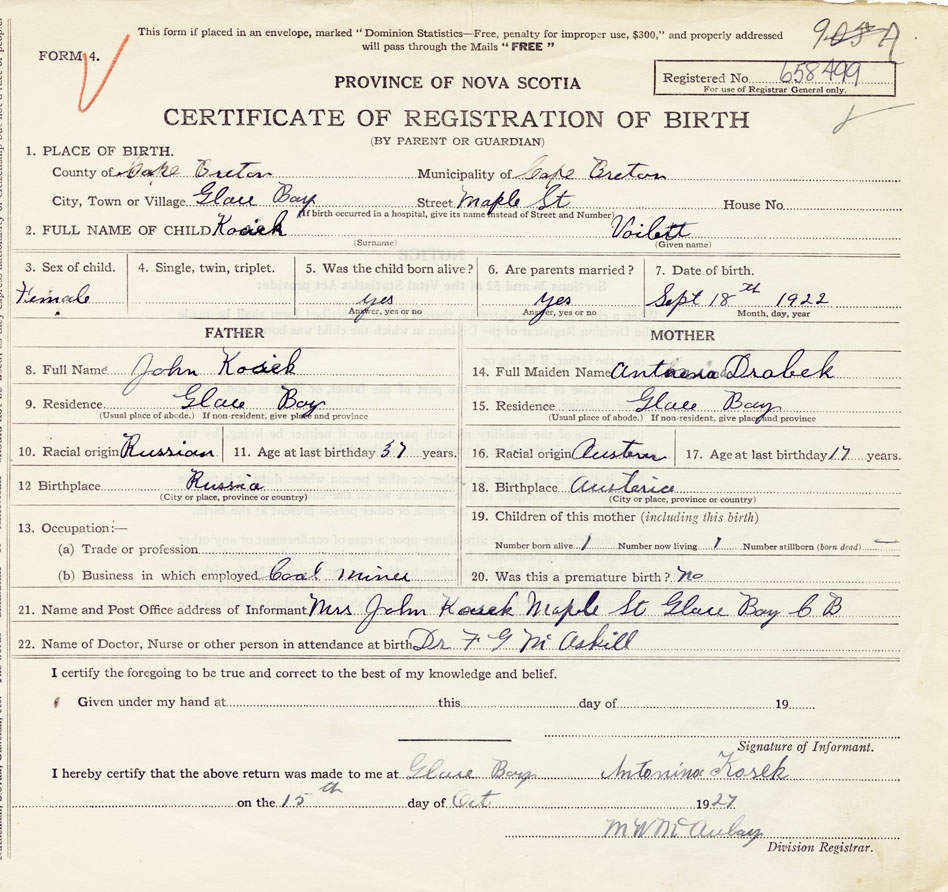 This form if placed in an envelope, marked "Dominion Statistics—Free, penalty for improper use, $300," and properly addressed
will pass through the Mails "FREE"
FORM 4.
Registered No. 658499
For use of Registrar General only.
PROVINCE OF NOVA SCOTIA
CERTIFICATE OF REGISTRATION OF BIRTH
(BY PARENT OR GUARDIAN)
1. PLACE OF BIRTH.
County of Cape Breton Municipality of Cape Breton
City, Town or Village Glace Bay Street Maple St House No.
(If birth occurred in a hospital, give its name instead of Street and Number)
2. FULL NAME OF CHILD Voilett
(Surname) (Given name)
3. Sex of child. 4. Single, twin, triplet. 5. Was the child born alive? 6. Are parents married? 7. Date of birth.
Female yes Yes Sept 18th 1922
Answer, yes or no Answer, yes or no Month, day, year
FATHER MOTHER
8. Full Name John 14. Full Maiden Name Drabek
9. Residence Glace Bay 15. Residence Glace Bay
(Usual place of abode.) If non-resident, give place and province (Usual place of abode.) If non-resident, give place and province
10. Racial origin Russian 11. Age at last birthday 37 years. 16. Racial origin Austern 17. Age at last birthday 17 years.
12 Birthplace Russia 18. Birthplace Austeria
(City or place, province or country) (City or place, province or country)
13. Occupation:— 19. Children of this mother (including this birth)
(a) Trade or profession Number born alive 1 Number now living 1 Number stillborn (born dead) —
(b) Business in which employed Coal Miner 20. Was this a premature birth? no
21. Name and Post Office address of Informant Mrs John Maple St Glace Bay C B
22. Name of Doctor, Nurse or other person in attendance at birth Dr F G McAskill
I certify the foregoing to be true and correct to the best of my knowledge and belief.
Given under my hand at this day of 19
Signature of Informant.
I hereby certify that the above return was made to me at Glace Bay Antonina Kosek
on the 15th day of Oct 1927
Division Registrar.